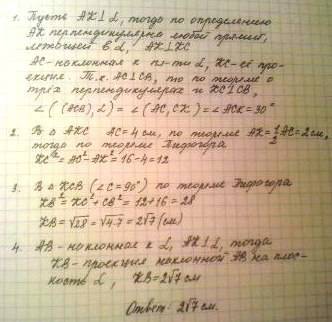 1. Пусть AK⊥α, тогда по определению
AK перпендикулярна любой прямой,
лежащей в α, AK⊥KC
AC-наклонная к пл-ти α, KC-её про-
екция. Т.к. AC⊥CB, то по теореме о
трёх перпендикулярах и KC⊥CB,
∠((ACB),α) = ∠(AC,CK) = ∠ACK=30°
2. В Δ AKC AC=4см, по теореме AK=1/2 AC=2см,
тогда по теореме Пифагора
KC²=AC²-AK²=16-4=12
3. В Δ KCB (∠C=90°) по теореме Пифагора
KB²=KC²+CB²=12+16=28
KB=√28=√4·7=2√7(см)
4. AB-наклонная к α, AK⊥α, тогда
KB-проекция наклонной AB на плос-
кость α, KB=2√7см
Ответ: 2√7см.